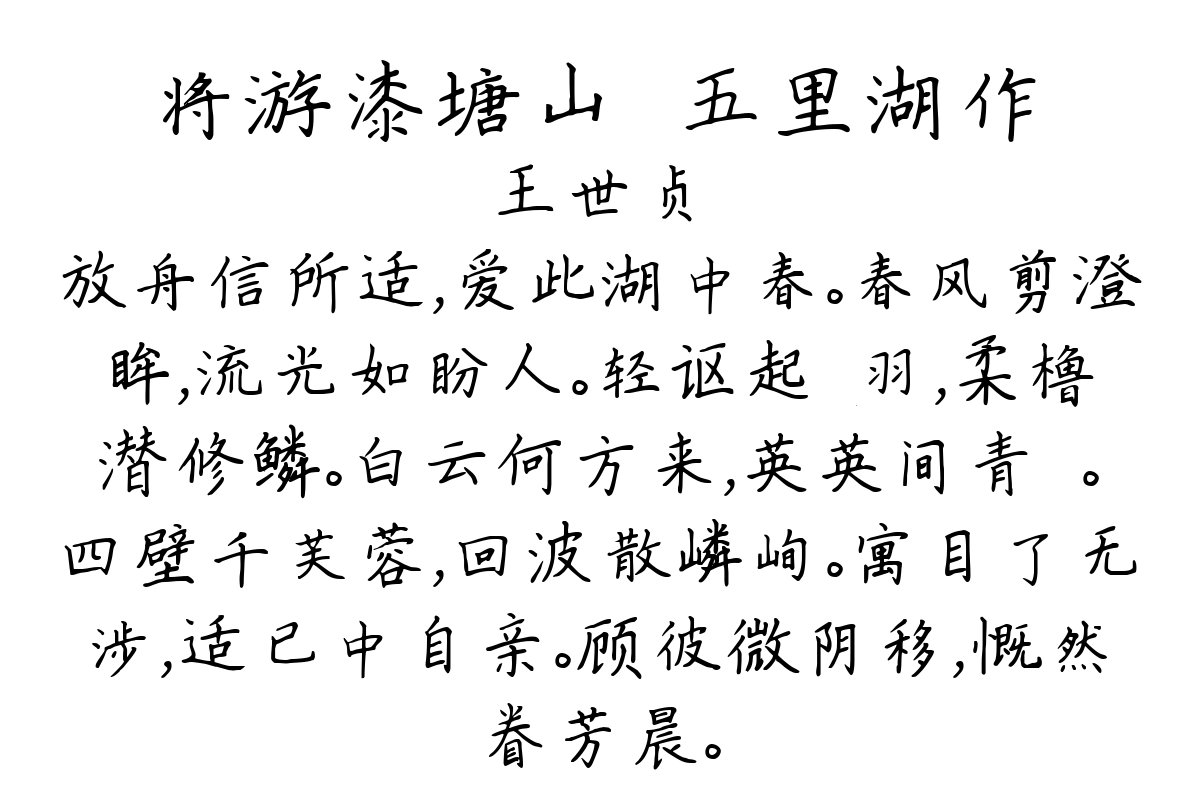 将游漆塘山 五里湖作
王世贞
放舟信所适,爱此湖中春。春风剪澄
眸,流光如盼人。轻讴起 羽,柔橹
潜修鳞。白云何方来,英英间青 。
四壁千芙蓉,回波散嶙峋。寓目了无
涉,适己中自亲。顾彼微阴移,慨然
眷芳晨。